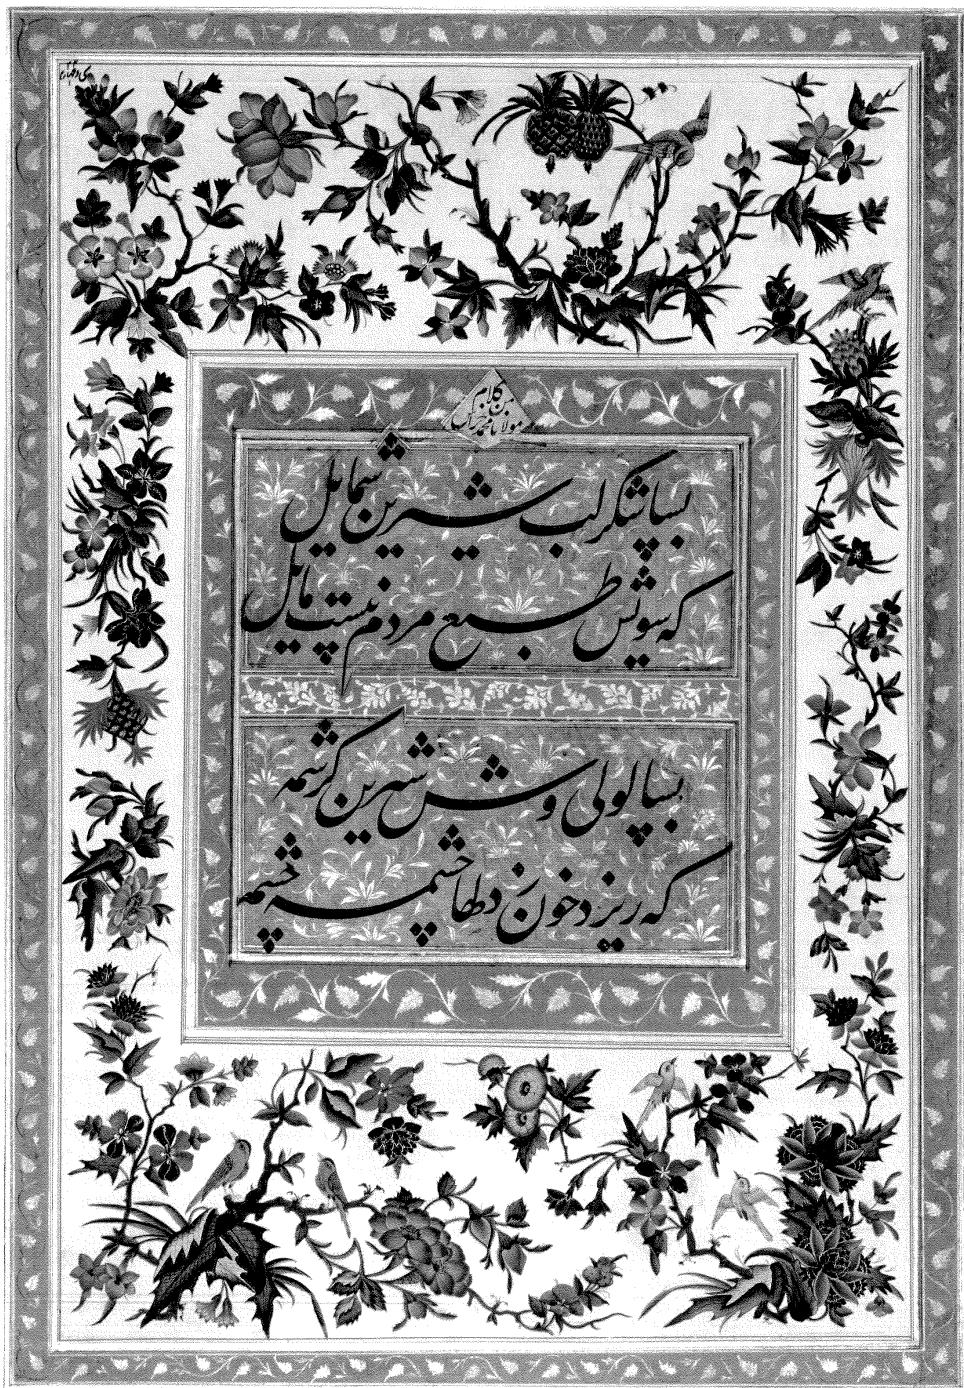 من کلام
مولانا محمد
بسا شکر لب شیرین شمایل
که سویش طبع مردم نیست مایل
بسا لولی وش شیرین کرشمه
که ریزد خون دلها چشمه چشمه